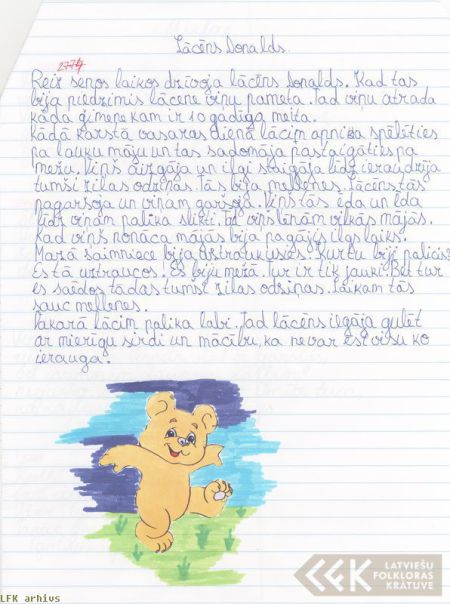 Lācēns Donalds.
2774
Reiz senos laikos dzīvoja lācēns Donalds. Kad tas
bija piedzimis lācene viņu pameta. Tad viņu atrada
kāda ģimene kam ir 10 gadīga meita.
Kādā karstā vasaras dienā lācim apnika spēlēties
pa lauku māju un tas sadomāja pastaigāties pa
mežu. Viņš aizgāja un ilgi staigāja līdz ieraudzīja
tumši zilas odziņas. Tās bija mellenes. Lācēns tās
pagaršoja un viņam garšoja. Viņš tās ēda un ēda
līdz viņam palika slikti. Tad viņš lēnām vilkās mājās.
Kad viņš nonāca mājās bija pagājis ilgs laiks.
Mazā saimniece bija uztraukusies. Kur tu biji palicis?
Es tā uztraucos. Es biju mežā. Tur ir tik jauki. Bet tur
es saēdos tādas tumši zilas odziņas. Laikam tās
sauc mellenes.
Vakarā lācim palika labi. Tad lācēns izgāja gulēt
ar mierīgu sirdi un mācību, ka nevar ēst visu ko
ierauga.
LFK arhīvs
LFK
LATVIEŠU
FOLKLORAS
KRĀTUVE